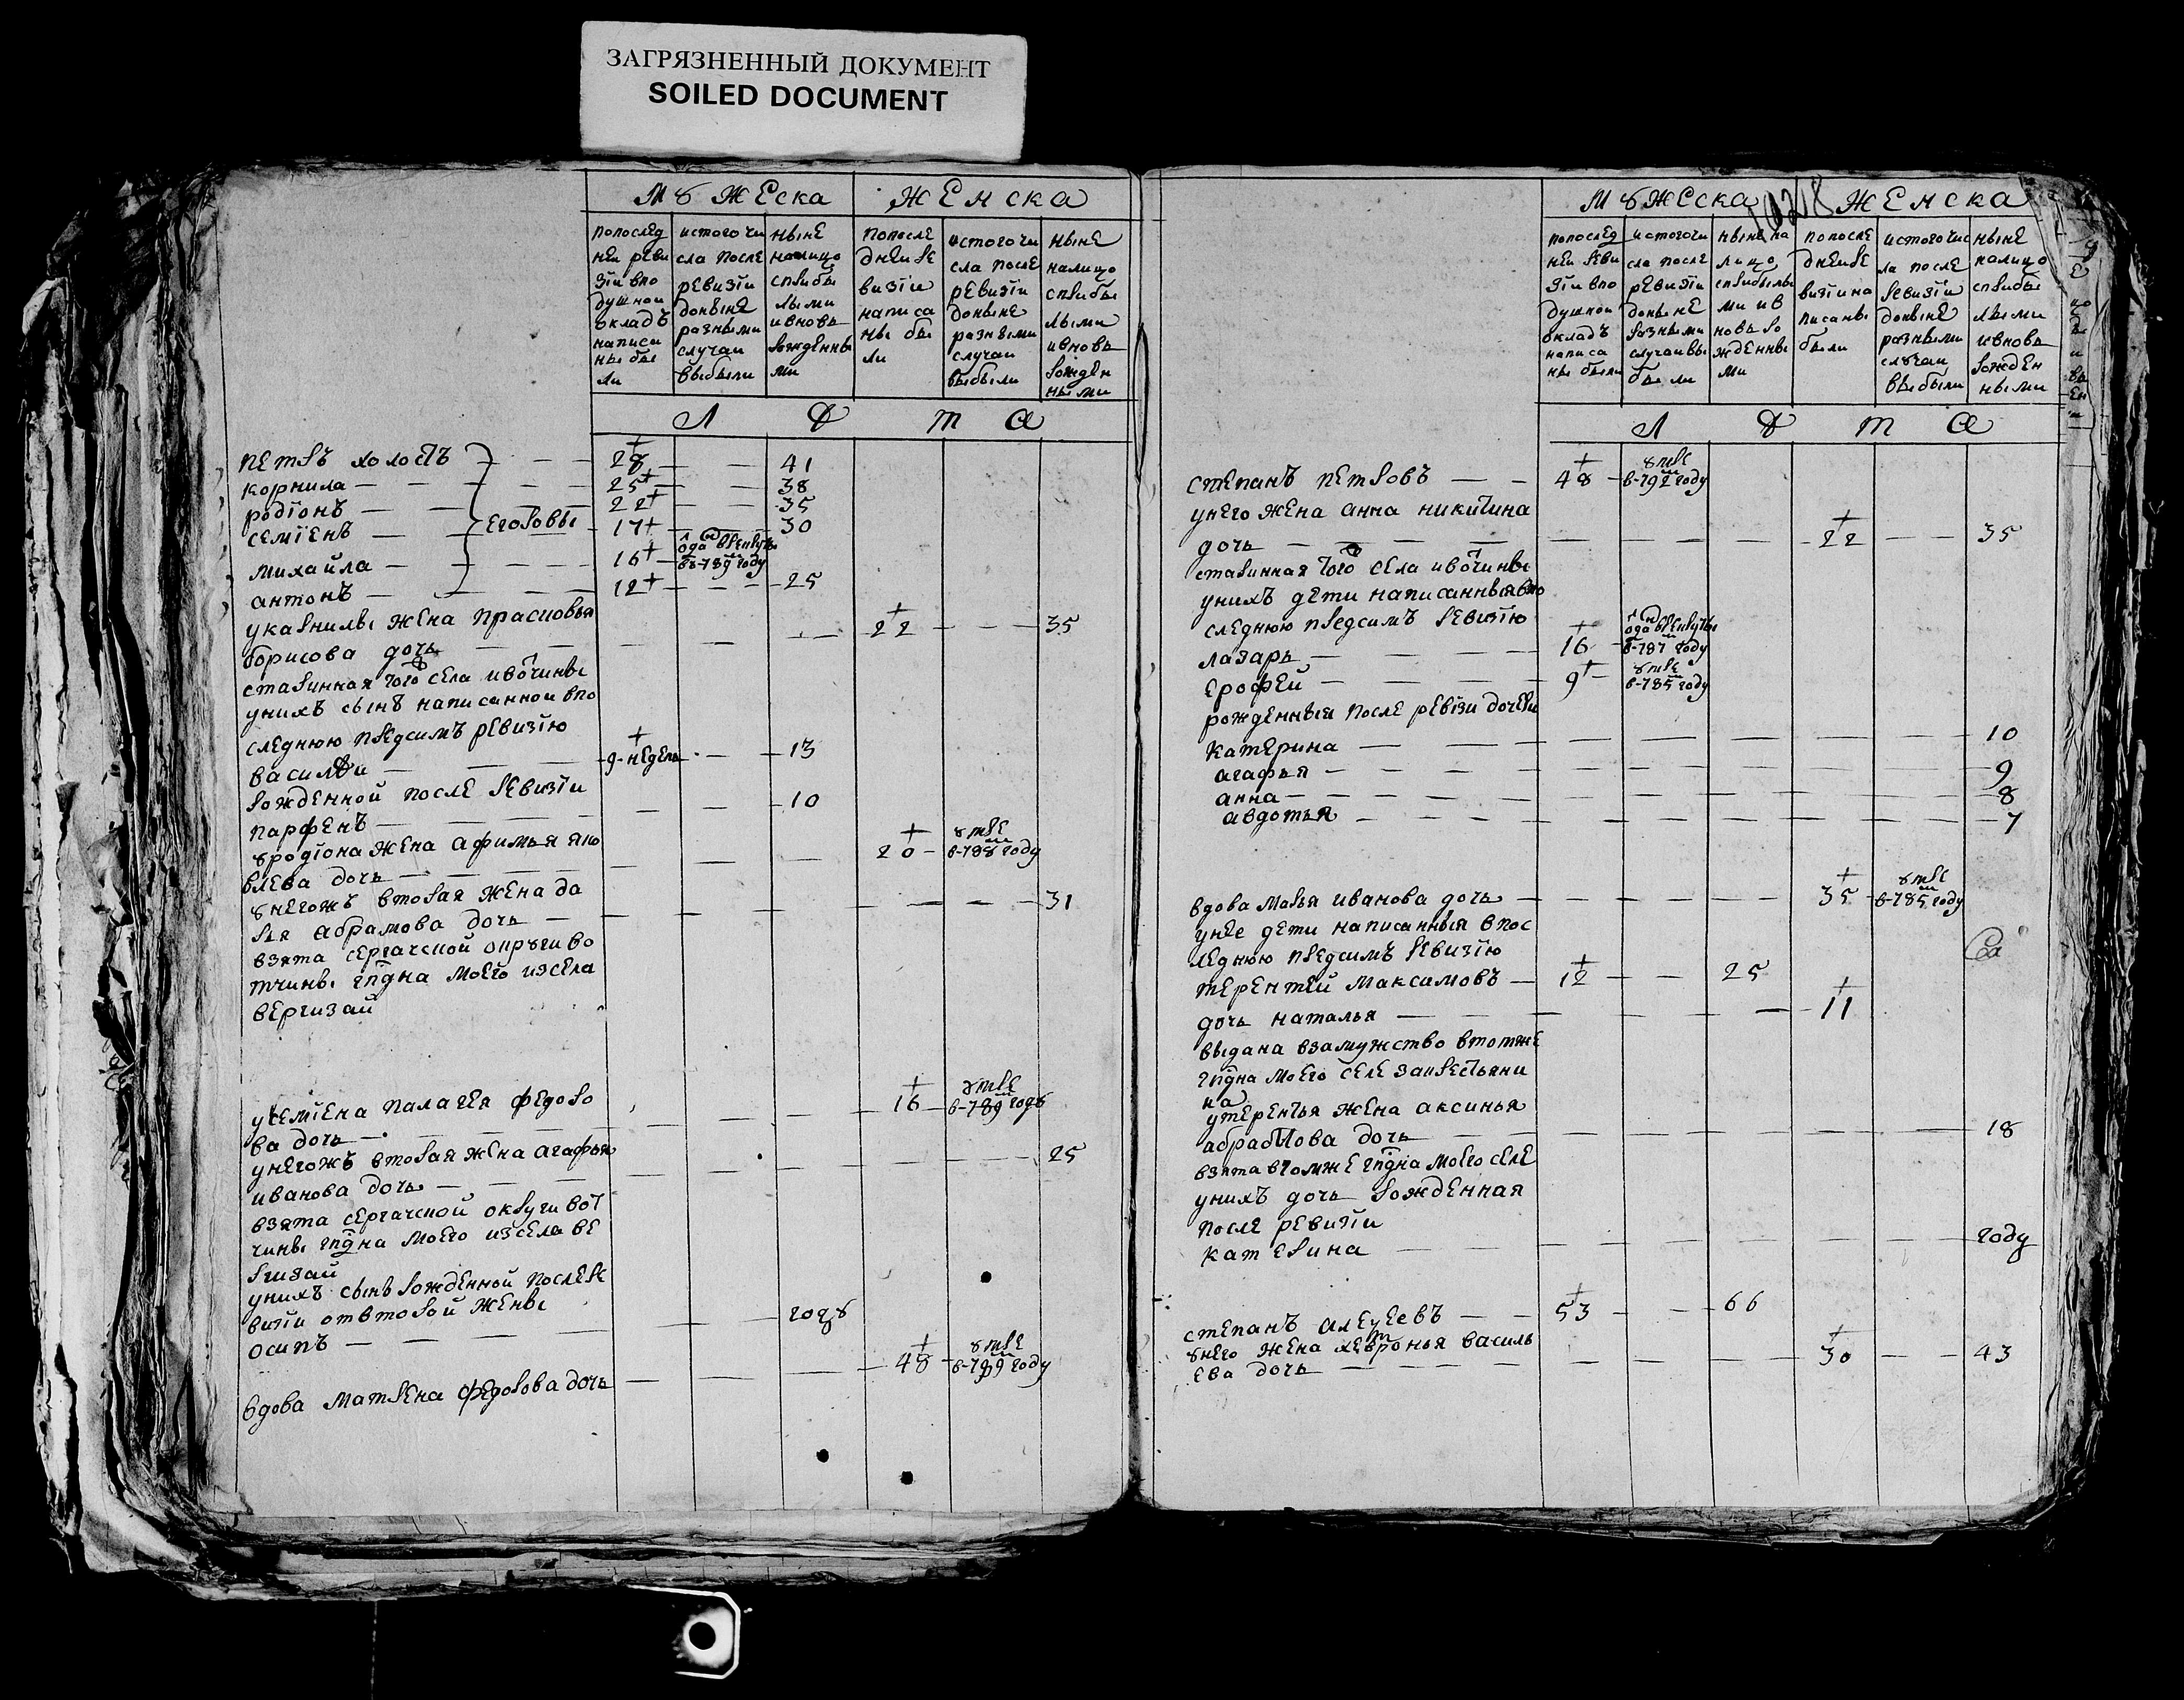 ЗАГРЯЗНЕННЫЙ ДОКУМЕНТ
SOILED DOCUMENT
мꙋжеска женска
попослед неи реви зіи впо душнои окладъ написа ны бы ли
истогочи сла после ревизіи доныне разными случаи выбыли
ныне налицо сприбы лыми ивновь рожденны ми
попосле днеи ре визіи написа ны бы ли
истогочи сла после ревизіи доныне разными случаи выбыли
ныне налицо сприбы лыми ивновь рожден ными
л ѣ т а
петръ холостъ 28 41
корнила 25 38
родіонъ 22 35
семіенъ егоровы 17 30
михайла 16 одан врекруты въ 789 году
антонъ 12 25
укарнилы жена прасковья 22 35
борисова дочь
старинная того села ивотчины
унихъ сынъ написанной впо
следнюю предсимъ ревизію
василѣи 9 недель 13
рожденной после ревизіи
парфенъ 10
ꙋродіона жена афимья яко 20 ꙋмре в 788 году
влева дочь
ꙋнегожъ вторая жена да 31
рья абрамова дочь
взята сергачской окрꙋги во
тчины гпдна моего изсела
вергизай
усемiена палагея федоро 16 ꙋмре в 789 годꙋ
ва дочь
унегожъ вторая жена агафья 25
иванова дочь
взята сергачской округи вот
чины гпдна моего изсела ве
ргизай
унихъ сынъ рожденной послере
визіи отвторой жены
осипъ годꙋ
вдова матрена федорова дочь 48 ꙋмре в 789 году
мꙋжеска женска
попослед неи реви зіи впо душнои окладъ написа ны были
истогочи сла после ревизіи доныне разными случаи вы бы ли
ныне на лицо сприбылы ми ив новь ро жденны ми
попосле днеи ре визіи на писаны были
истогочис ла после ревизіи доныне разными слꙋчаи выбыли
ныне налицо сприбы лыми ивновь рожден ными
л ѣ т а
степанъ петровъ 48 ꙋмре в 792 году
унего жена анна никитина
дочь 22 35
старинная того села ивотчины
унихъ дети написанныя впо
следнюю предсимъ ревизію
лазарь 16 одан врекруты в 787 году
ерофей 9 ꙋмре в 785 году
рожденныя после ревизи дочери
катерина 10
агафья 9
анна 8
авдотья 7
вдова марья иванова дочь 35 ꙋмре в 785 году
унее дети написанныя впос
леднюю предсимъ ревизію
терентей максимовъ 12 25
дочь наталья 11
выдана взамужство втомже
гпдна моего селе закрестьяни
на
утерентья жена аксинья
абрамова дочь 18
взята втомже гпдна моего селе
унихъ дочь рожденная
после ревизіи
катерина году
степанъ алеѯеевъ 53 66
ꙋнего жена хевронья василь
ева дочь 30 43